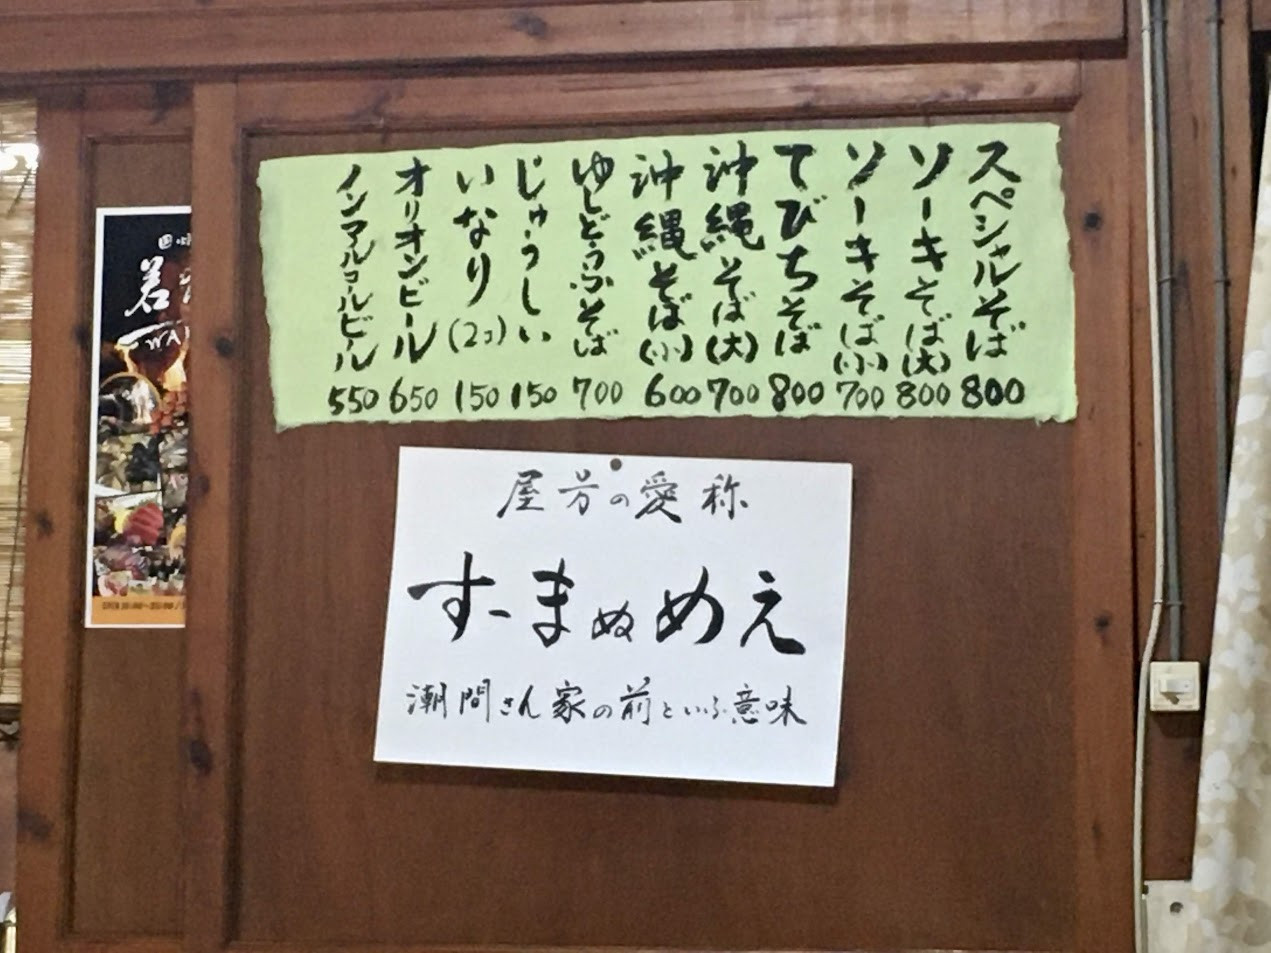 スペシャルそば 800
ソーキそば(大) 800
ソーキそば(小) 700
てびちそば 800
沖縄そば(大) 700
沖縄そば(小) 600
ゆしどうふそば 700
じゅうしい 150
いなり(2コ) 150
オリオンビール 650
ノンアルコールビール 550
屋号の愛称
すーまぬめえ
潮間さん家の前といふ意味